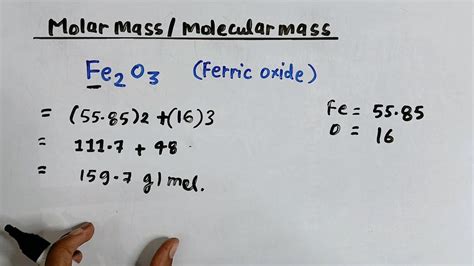 Molar mass / molecular mass
Fe2O3 (Ferric oxide)
= (55.85)2 + (16)3
= 111.7 + 48
= 159.7 g/mol.
Fe = 55.85
O = 16